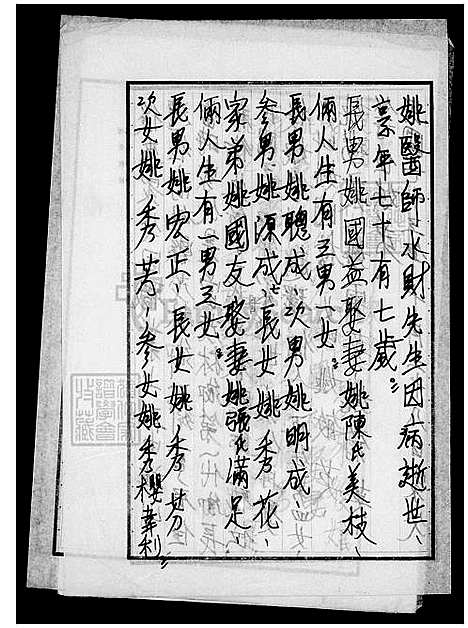 姚醫師水財先生因病逝世、
享年七十有七歲、
長男姚國益娶妻姚陳氏美枝、
倆人生有三男一女、
長男姚聰成、次男姚明成、
參男姚源成、長女姚秀花、
家弟姚國友娶妻姚張氏滿足、
倆人生有一男三女、
長男姚宏正、長女姚秀芬、
次女姚秀芳、參女姚秀櫻